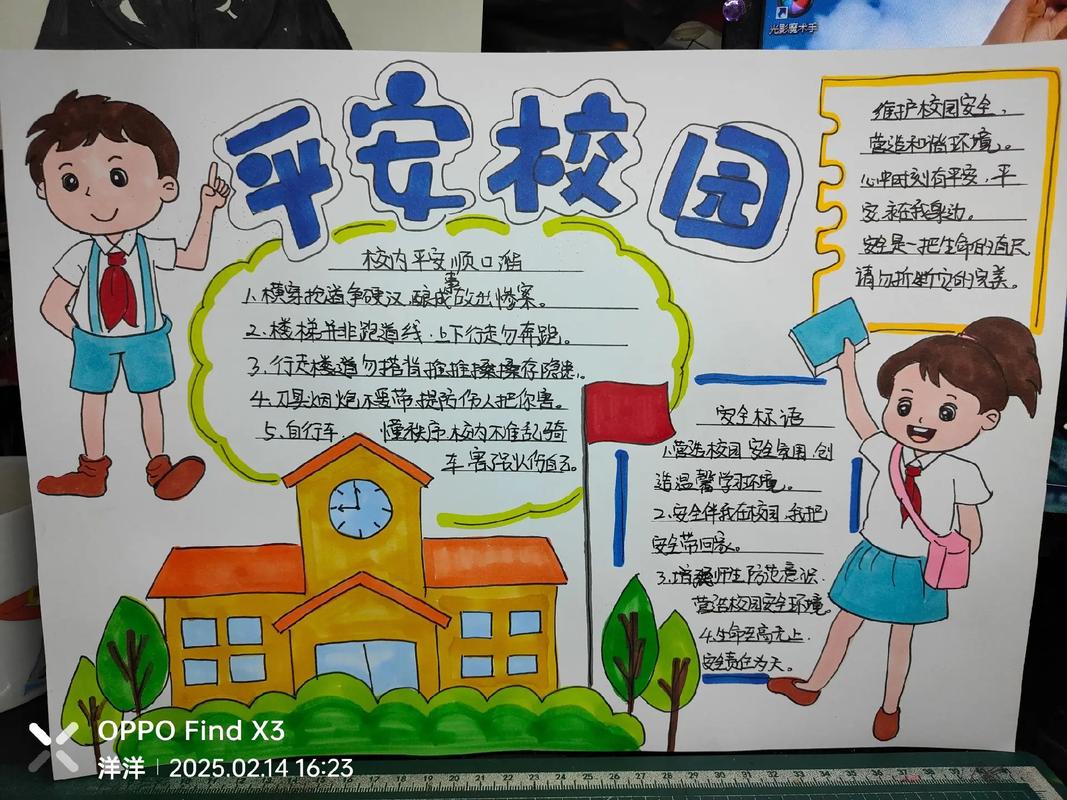 光影魔术手
平安校园
维护校园安全，
营造和谐环境。
心中时刻有平安，平
安永在我身边。
安全是一把生命的直尺
请勿折断它的完美。
校内平安顺口溜
1.横穿抢道争硬汉，酿成事故出惨案。
2.楼梯并非跑道线，上下行走勿奔跑。
3.行走楼道勿搭背 推推搡搡存隐患。
4.刀具烟炮不要带 提防伤人把你害。
5.自行车 懂秩序 校内不准乱骑
车 害强从伤自己。
安全标语
1.营造校园安全氛围，创
造温馨学习环境。
2.安全伴我在校园，我把
安全带回家。
3.增强师生防范意识，
营造校园安全环境
4.生命至高无上，
安全责任为天。
OPPO Find X3
洋洋 | 2025.02.14 16:23